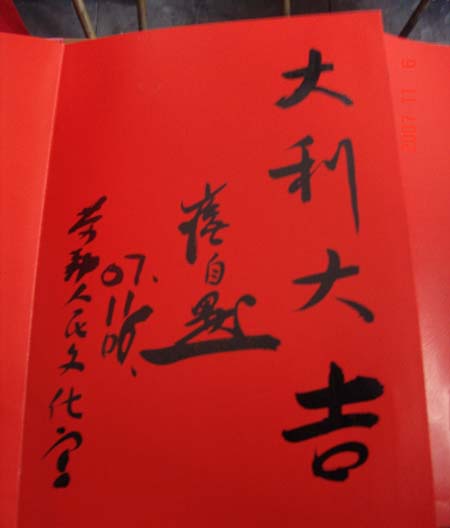 大利大吉
自
07.
11
06.
劳动人民文化宫
2007 11 6